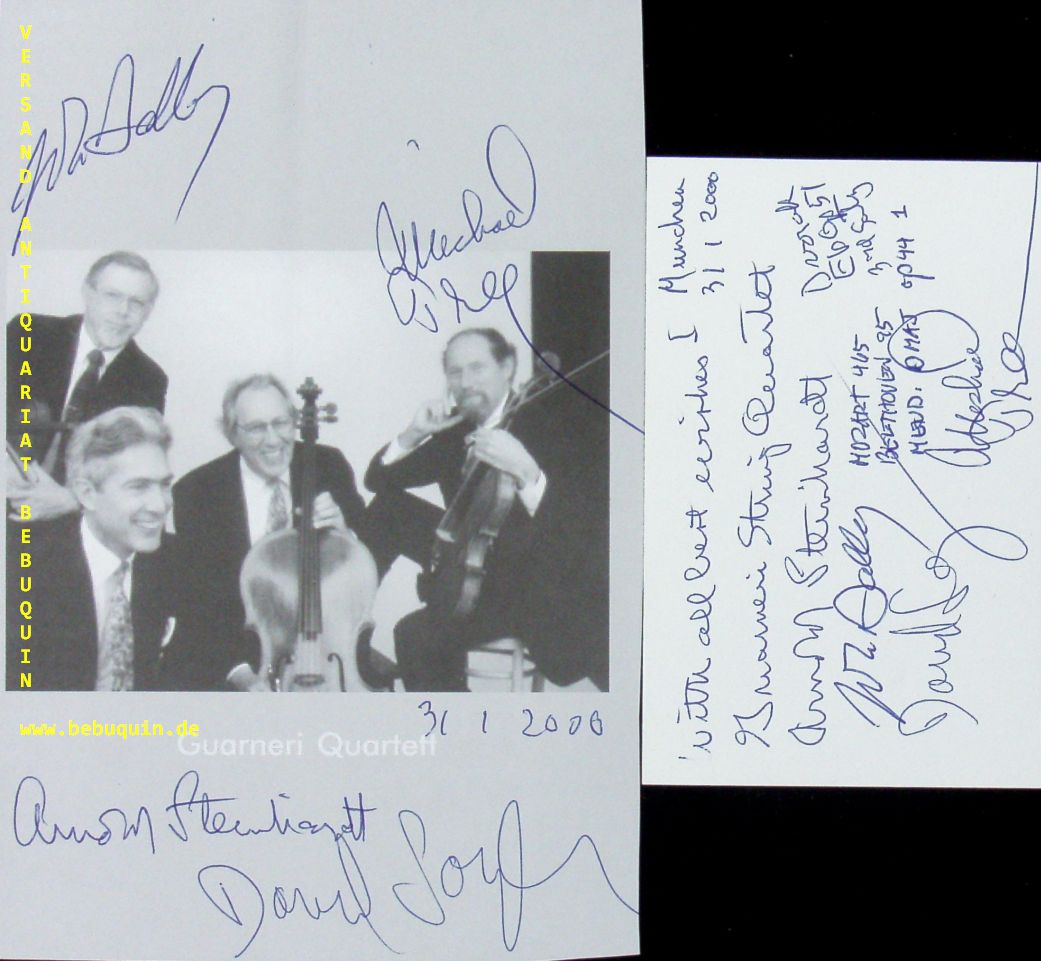 VERSAND ANTIQUARIAT BEBUQUIN
Wm Dalley
Michael
Tree
31 1 2000
www.bebuquin.de
Guarneri Quartett
Arnold Steinhardt
David Soyer
with all best wishes
Munchen
31 1 2000
Guarneri String Quartet
Arnold Steinhardt
Dvorak
Eb Op 51
MOZART 465
BEETHOVEN 95
MEND. D MAJ op 44 1
Dalley
David
Michael
Tree